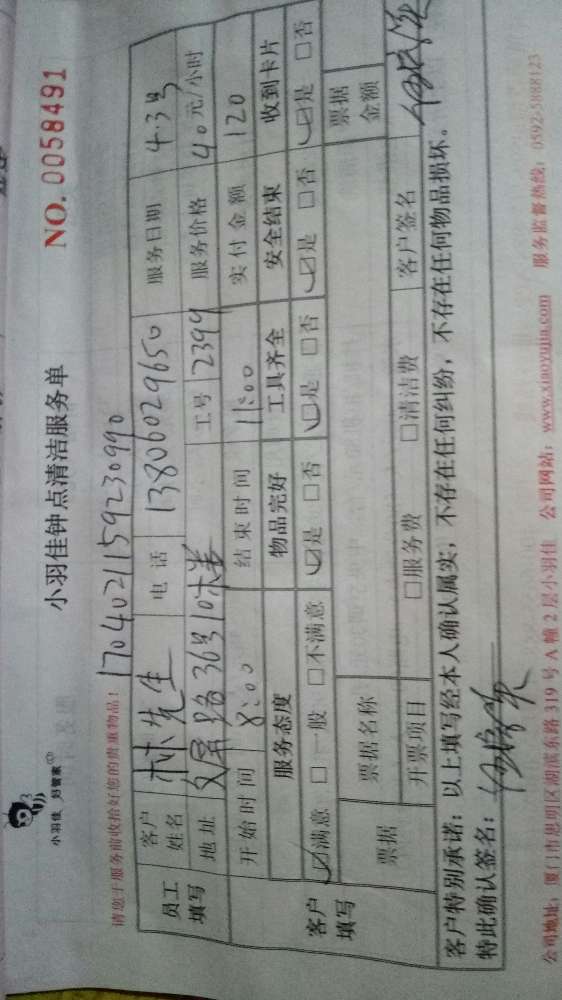 小羽佳 好管家
小羽佳钟点清洁服务单
NO. 0058491
请您于服务前收拾好您的贵重物品！ 170402115923099०
员工填写 客户姓名 林先生 电话 13806029650 服务日期 4.3号
地址 文屏路36号10# 工号 2399 服务价格 40元/小时
开始时间 8:00 结束时间 11:00 实付金额 120
客户填写 服务态度 物品完好 工具齐全 安全结束 收到卡片
☑满意 □一般 □不满意 ☑是 □否 ☑是 □否 ☑是 □否 ☑是 □否
票据 票据名称 票据金额
开票项目 □服务费 □清洁费 客户签名
客户特别承诺：以上填写经本人确认属实，不存在任何纠纷，不存在任何物品损坏。
特此确认签名：
公司地址：厦门市思明区湖滨东路319号A幢2层小羽佳 公司网站：www.xiaoyujia.com 服务监督热线：0592-5888123